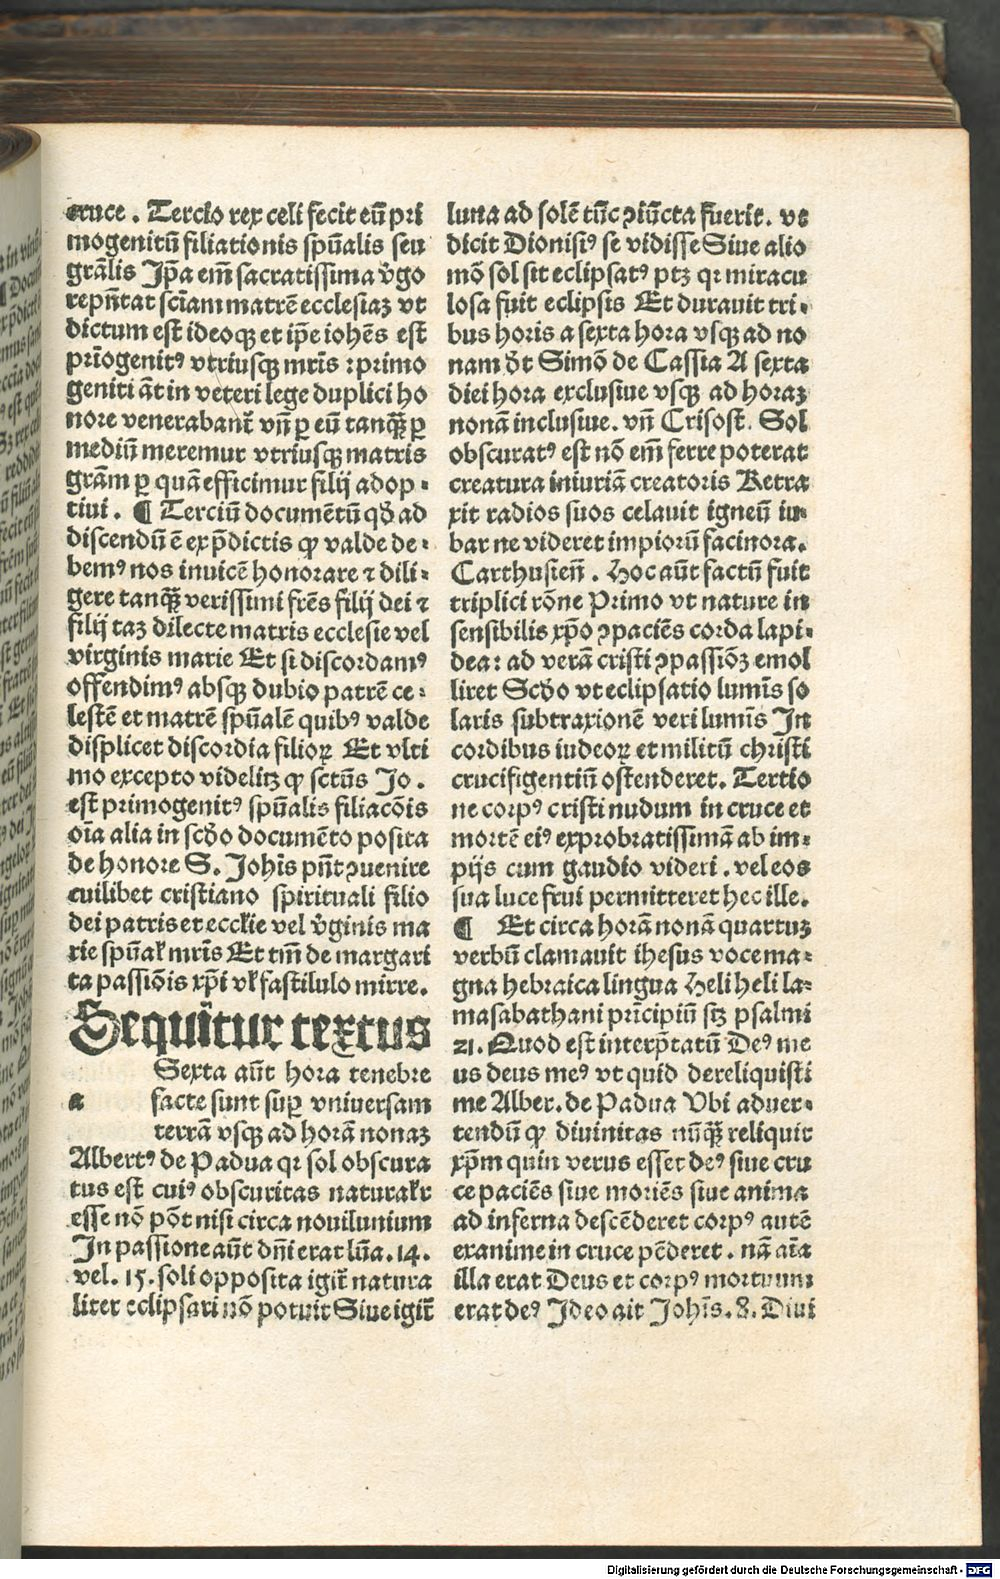 cruce . Tercio rex celi fecit eū pri
mogenitū filiationis spūalis seu
grālis Jp̄a em̄ sacratissima v̄go
repn̄tat sc̄iam matrē ecclesiaꝫ vt
dictum est ideoqꝫ et ip̄e iohēs est
prīogenitꝰ vtriusqꝫ mr̄is ⁊ primo
geniti āt in veteri lege duplici ho
nore venerabant̄ vn̄ ꝑ eū tanqꝫ̄ ꝑ
mediū meremur vtriusqꝫ matris
grām ꝑ quā efficimur filij adop⸗
tiui . ¶ Terciū documētū qd̄ ad
discendū ē exp̄dictis ꝙ valde de⸗
bemꝰ nos inuicē honorare ⁊ dili⸗
gere tanqꝫ̄ verissimi frēs filij dei ⁊
filij taꝫ dilecte matris ecclesie vel
virginis marie Et si discordamꝰ
offendimꝰ absqꝫ dubio patrē ce⸗
lestē et matrē spūalē quibꝰ valde
displicet discordia filioꝝ Et vlti
mo excepto videlitꝫ ꝙ sctūs Jo .
est primogenitꝰ spūalis filiacōis
oīa alia in scd̄o documēto posita
de honore S. Joh̄is pn̄t ꝯuenire
cuilibet cristiano spirituali filio
dei patris et eccl̄ie vel v̄ginis ma
rie spūal̄ mr̄is Et tm̄ de margari
ta passiōis xp̄i vl̄ fastilulo mirre.
Sequūtur textus
Sexta aūt hora tenebre
a facte sunt suꝑ vniuersam
terrā vsqꝫ ad horā nonaꝫ
Albertꝰ de Padua qꝛ sol obscura
tus est cuiꝰ obscuritas natural̄r
esse nō pōt nisi circa nouilunium
Jn passione aūt dn̄i erat lūa . 14 .
vel . 15 . soli opposita igit̄ natura
liter eclipsari nō potuit Siue igit̄
luna ad solē tūc ꝯiūcta fuerit . vt
dicit Dionisiꝰ se vidisse Siue alio
mō sol sit eclipsatꝰ ptꝫ qꝛ miracu
losa fuit eclipsis Et durauit tri⸗
bus horis a sexta hora vsqꝫ ad no
nam d̄t Simō de Cassia A sexta
diei hora exclusiue vsqꝫ ad horaꝫ
nonā inclusiue . vn̄ Crisost̄. Sol
obscuratꝰ est nō em̄ ferre poterat
creatura iniuriā creatoris Retra
xit radios suos celauit igneū iu⸗
bar ne videret impiorū facinora.
Carthusien̄ . Hoc aūt factū fuit
triplici rōne Primo vt nature in
sensibilis xp̄o ꝯpaciēs corda lapi⸗
dea: ad verā cristi ꝯpassiōꝫ emol
liret Scd̄o vt eclipsatio lumīs so
laris subtraxionē veri lumīs Jn
cordibus iudeoꝝ et militū christi
crucifigentiū ostenderet. Tertio
ne corpꝰ cristi nudum in cruce et
mortē eiꝰ exprobratissimā ab im⸗
pijs cum gaudio videri . vel eos
sua luce frui permitteret hec ille.
¶ Et circa horā nonā quartuꝫ
verbū clamauit ihesus voce ma⸗
gna hebraica lingua Heli heli la⸗
masabathani prīcipiū sitꝫ psalmi
21. Quod est interp̄tatū Deꝰ me
us deus meꝰ vt quid dereliquisti
me Alber. de Padua Vbi aduer⸗
tendū ꝙ diuinitas nūqꝫ̄ reliquit
xp̄m quin verus esset deꝰ siue cru
ce paciēs siue moriēs siue anima
ad inferna descēderet corpꝰ autē
exanime in cruce pēderet . nā aīa
illa erat Deus et corpꝰ mortuum
erat deꝰ Jdeo ait Joh̄is. 8. Diui
Digitalisierung gefördert durch die Deutsche Forschungsgemeinschaft - DFG